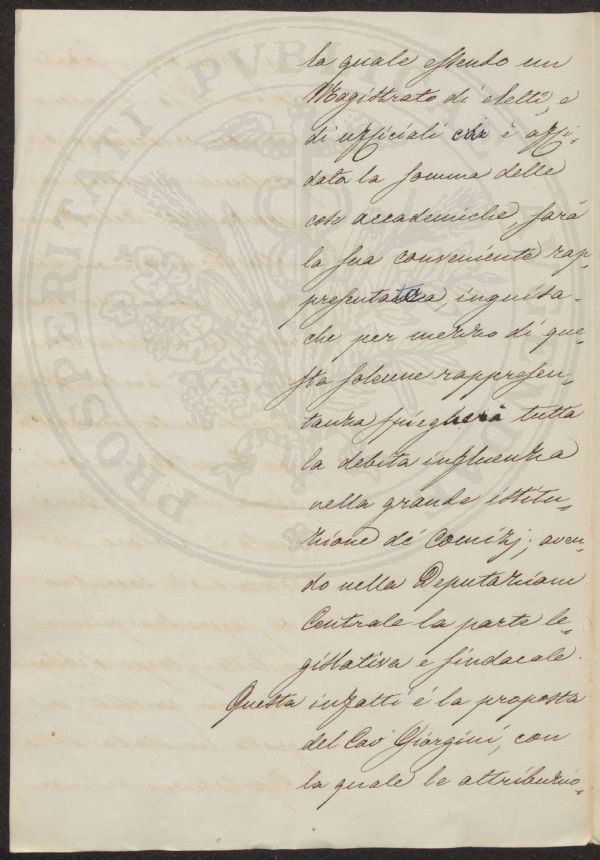 la quale essendo un
Magistrato di eletti, e
di ufficiali cui è affi-
data la somma delle
cose accademiche, farà
la sua conveniente rap-
presentanza, inguisa-
che per mezzo di que-
sta solenne rappresen-
tanza spiegherà tutta
la debita influenza
nella grande istitu-
zione de' Comizj; aven-
do nella Deputazione
Centrale la parte le-
gislativa e sindacale.
Questa infatti é la proposta
del Cav Giorgini, con
la quale le attribuzio-
PROSPERITATI PUBLICAE